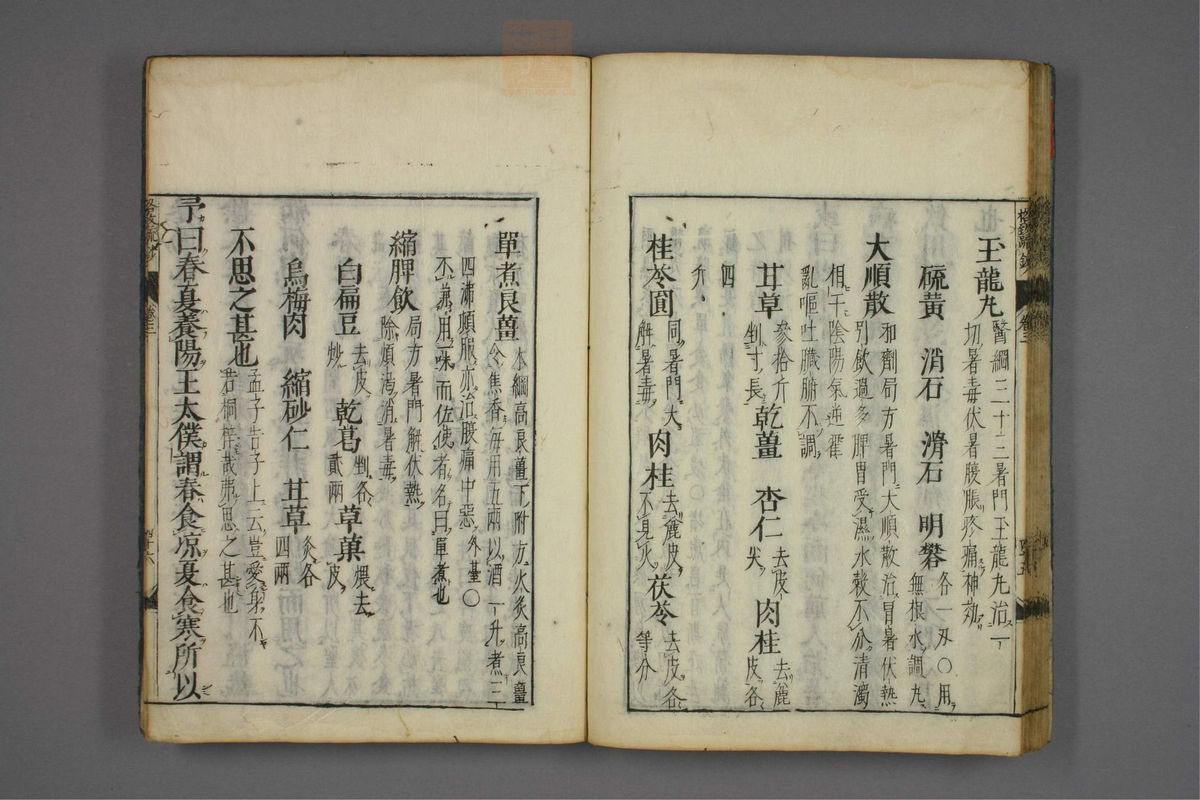 玉龍丸 醫綱三十三暑門玉龍丸治一
切暑毒伏暑腹脹疼痛神効
硫黄 消石 滑石 明礬 各一刄○用
無根水調丸
大順散 和劑局方暑門大順散治冒暑伏熱
引飲過多脾胃受濕水穀不分清濁
相干陰陽氣逆霍
亂嘔吐臟腑不調
甘草 夌拾斤
剉寸長 乾薑 杏仁 去皮
尖 肉桂 去麁
皮各
四
斤
桂苓圓 同暑門大
解暑毒 肉桂 去麁皮
不見火 茯苓 去皮各
等分
單煮良薑 本綱高良薑下附方火炙高良薑
令焦香每用五兩以酒一升煮三
四沸頓服亦治腹痛中惡 外臺○
不兼用一味而佐使者名曰單煮也
縮脾飲 局方暑門解伏熱
除煩渇消暑毒
白扁豆 去皮
炒 乾葛 剉各
貳兩 草菓 煨去
皮
烏梅肉 縮砂仁 甘草 炙各
四兩
不思之甚也 孟子告子上云豈愛身不
若桐梓哉弗思之甚也
予曰春夏養陽王太僕謂春食凉夏食寒所以